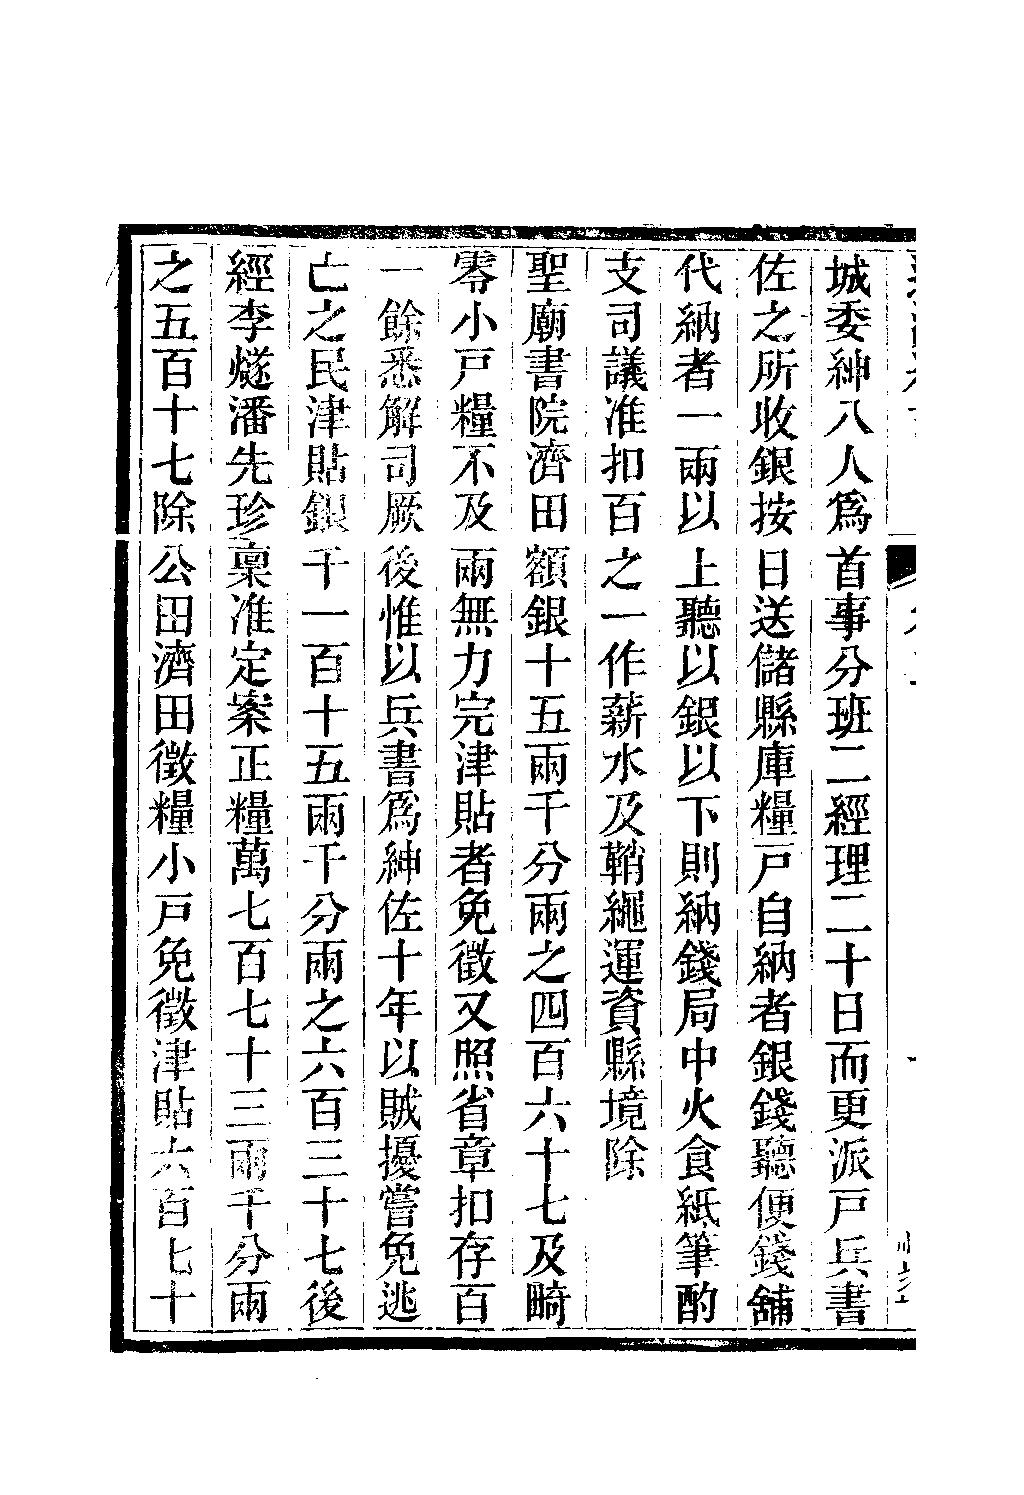 城委紳八人爲首事分班二經理二十日而更派戸兵書
佐之所收銀按日送儲縣庫糧戸自納者銀錢聽便錢舖
代納者一兩以上聽以銀以下則納錢局中火食紙筆酌
支司議准扣百之一作薪水及鞘繩運資縣境除
聖廟書院濟田額銀十五兩千分兩之四百六十七及畸
零小戸糧不及兩無力完津貼者免徵又照省章扣存百
一餘悉解司厥後惟以兵書爲紳佐十年以賊擾嘗免逃
亡之民津貼銀千一百十五兩千分兩之六百三十七後
經李燧潘先珍稟准定案正糧萬七百七十三兩千分兩
之五百十七除公田濟田徵糧小戸免徵津貼六百七十